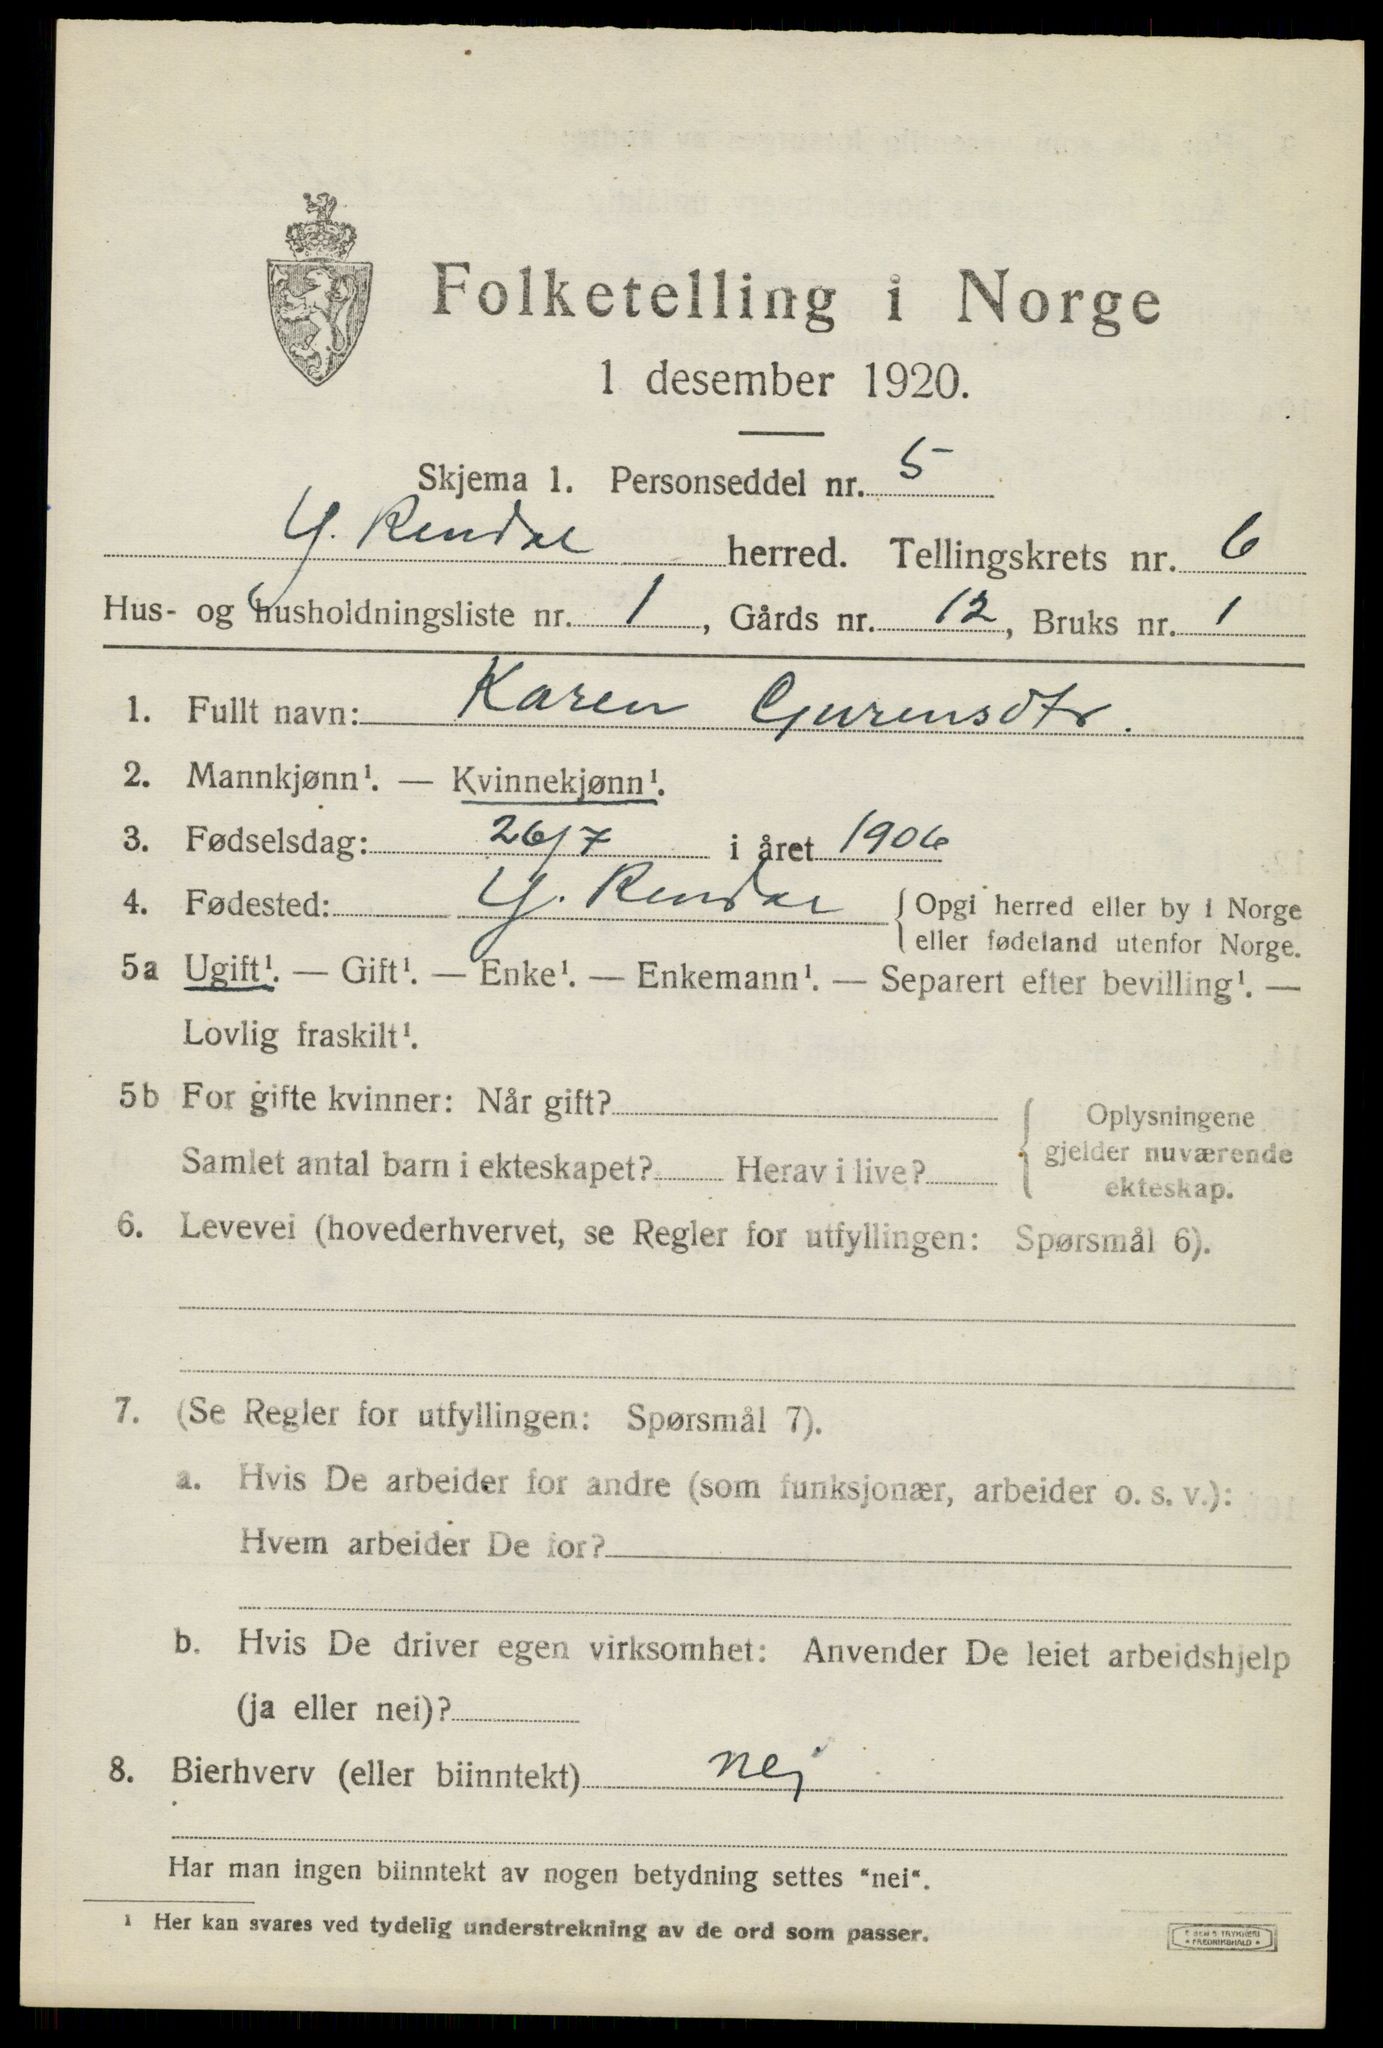 Folketelling i Norge
1 desember 1920.
Skjema 1. Personseddel nr. 5
Y. Rendal herred. Tellingskrets nr. 6
Hus- og husholdningsliste nr. 1, Gårds nr. 12, Bruks nr. 1
1. Fullt navn: Karen
2. Mannkjønn¹. — Kvinnekjønn¹.
3. Fødselsdag: 26/7 i året 1906
4. Fødested: Y. Rendal { Opgi herred eller by i Norge
eller fødeland utenfor Norge.
5a Ugift¹. — Gift¹. — Enke¹. — Enkemann¹. — Separert efter bevilling¹. —
Lovlig fraskilt¹.
5b For gifte kvinner: Når gift?
Samlet antal barn i ekteskapet? Herav i live?
{ Oplysningene
gjelder nuværende
ekteskap.
6. Levevei (hovederhvervet, se Regler for utfyllingen: Spørsmål 6).
7. (Se Regler for utfyllingen: Spørsmål 7).
a. Hvis De arbeider for andre (som funksjonær, arbeider o. s. v.):
Hvem arbeider De for?
b. Hvis De driver egen virksomhet: Anvender De leiet arbeidshjelp
(ja eller nei)?
8. Bierhverv (eller biinntekt) nej
Har man ingen biinntekt av nogen betydning settes "nei".
¹ Her kan svares ved tydelig understrekning av de ord som passer.
TRYKKERI
FREDRIKSHALD